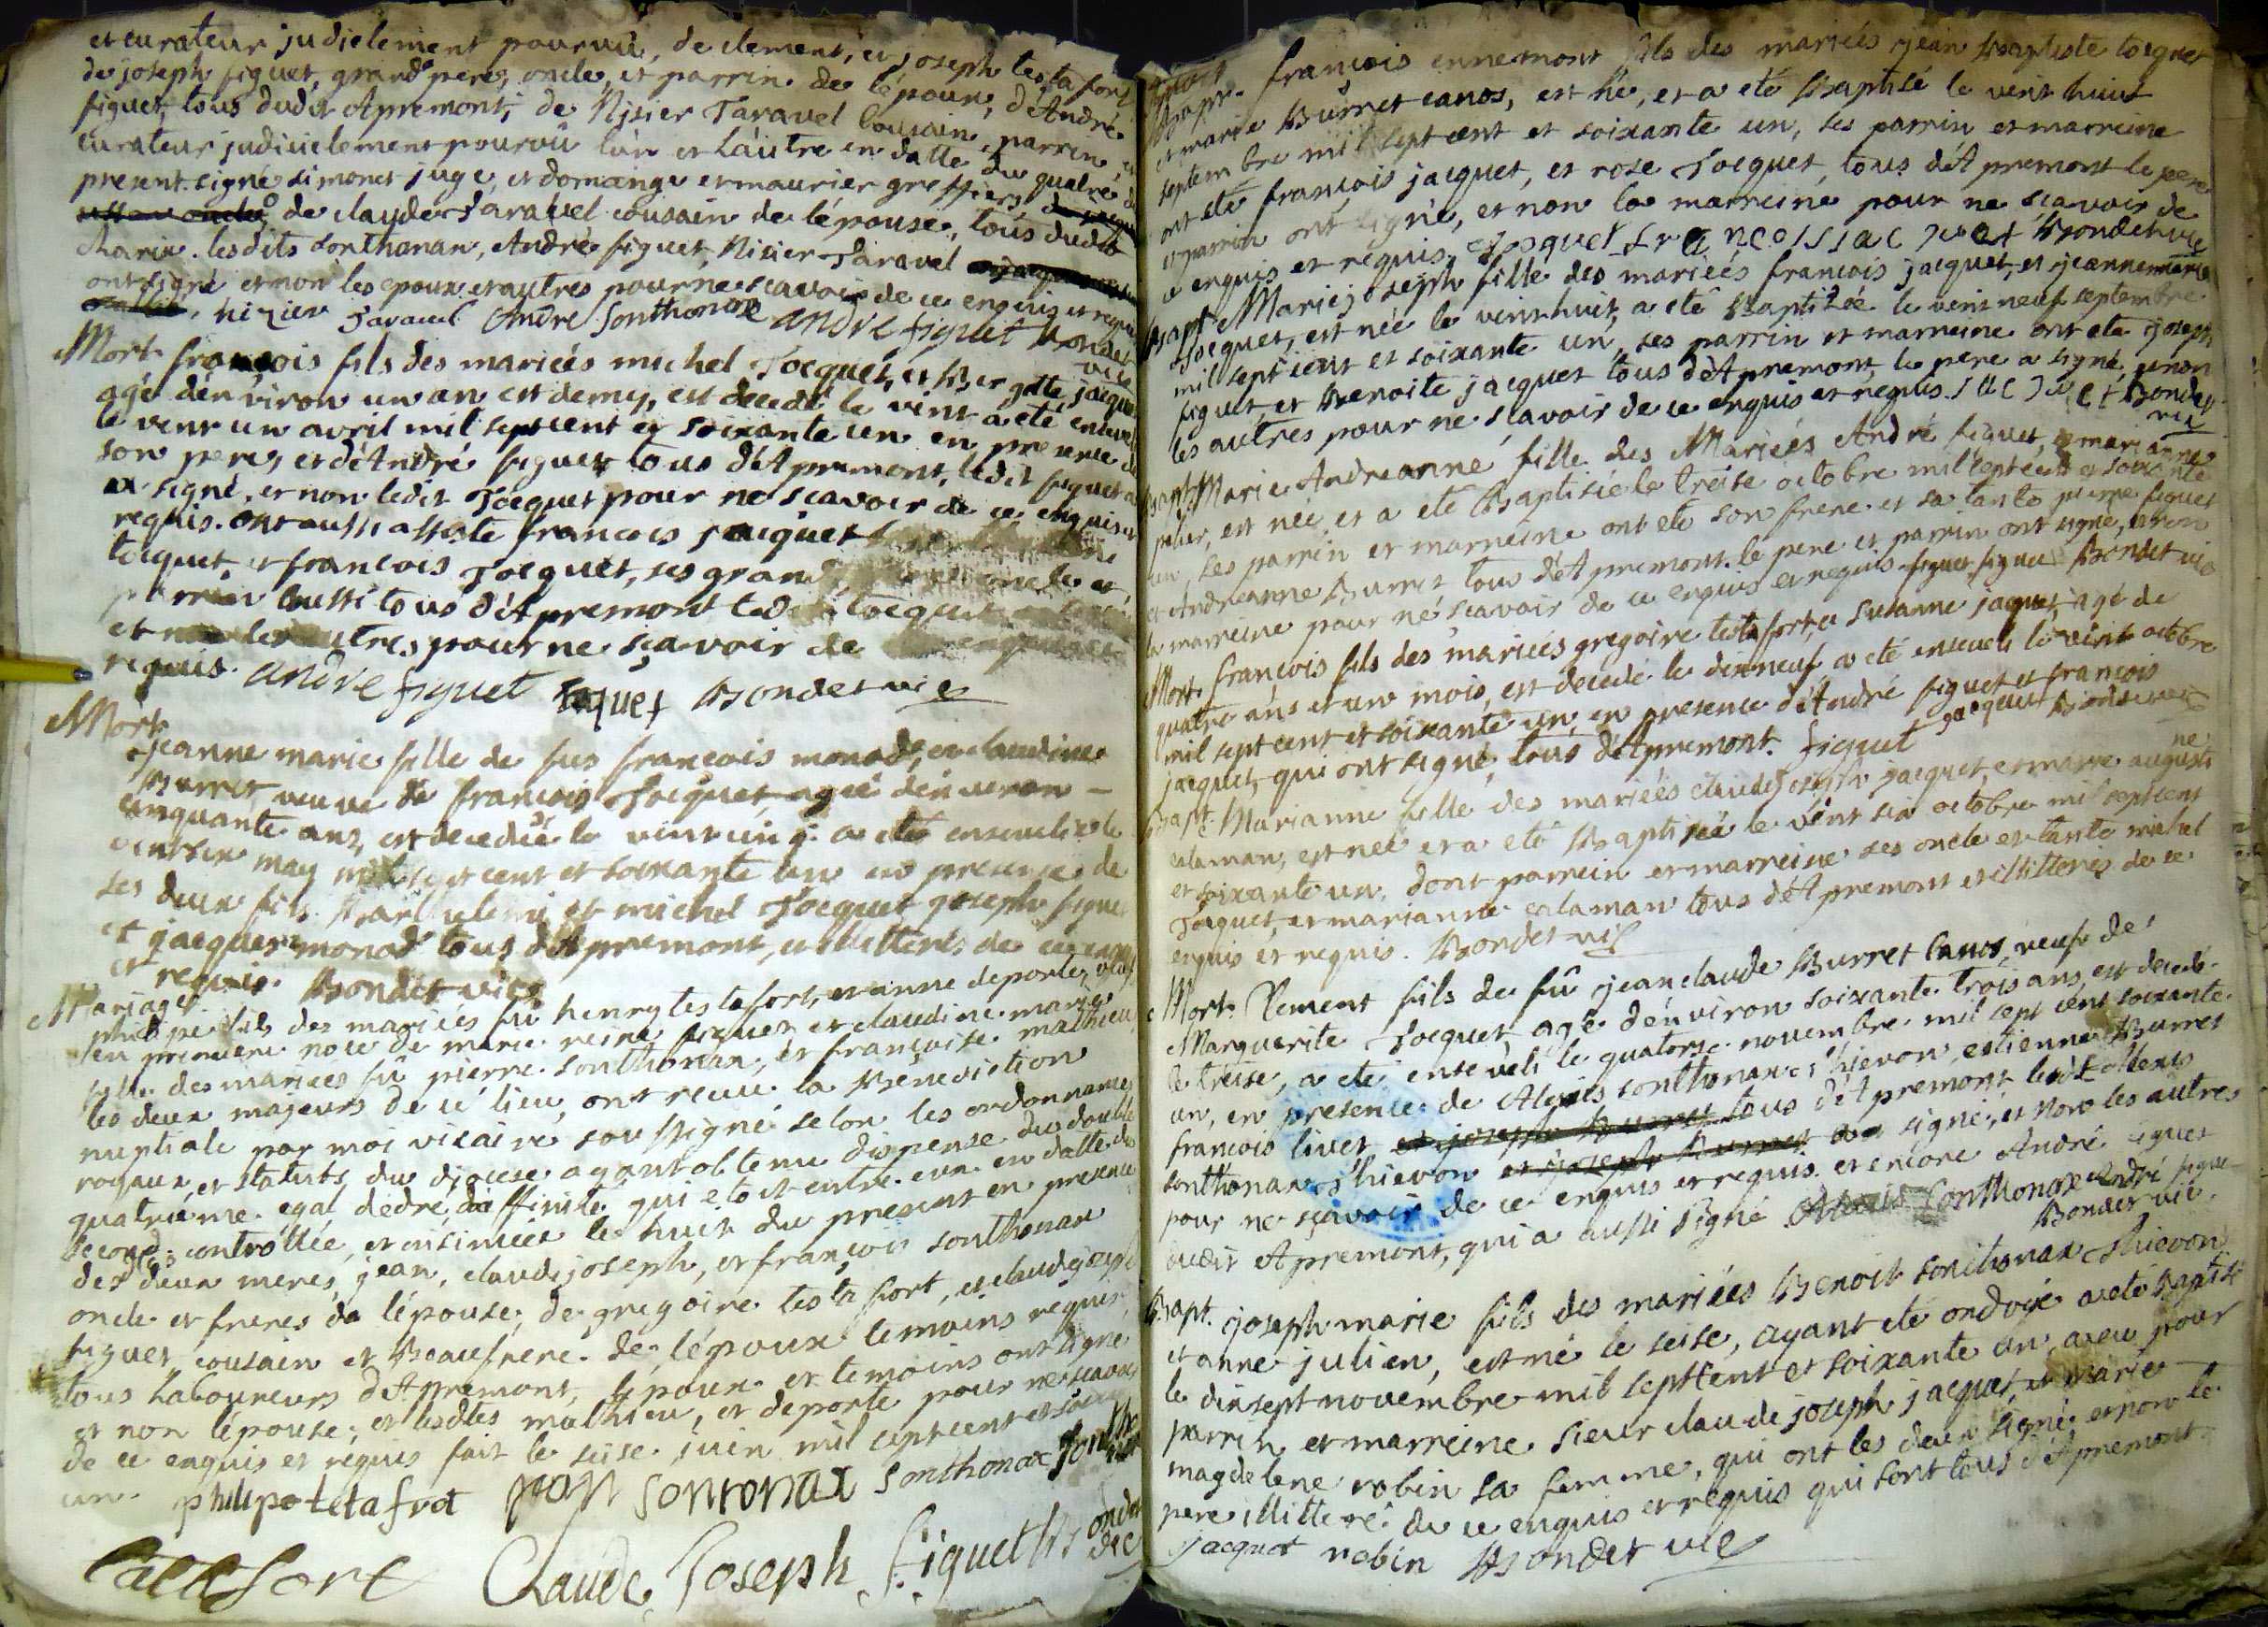 et curateur judicielement pourvû, de clement, et joseph testa fort
de joseph figuet, grand pere, oncle, et parrin de l'époux, d'André
figuet, tous dudit Apremont, de Nisier Taravel cousain, parrin, et
curateur judicielement pourvû l'un et l'autre en datte du quatre du
present signé simonet juge, et domange et maurier greffiers,
de claude Taravel cousain de l'épouse, tous dudit
Charix. lesdits sonthonan, André figuet, Nisier Taravel
ont signé et non les epoux et autres pour ne scavoir de ce enquis et requis
nizier Taravel André Sonthonax andré figuet Bondet vic
Mort. françois fils des mariées michel Tocquet, et Bergette jacquet
agé d'environ un an et demy, est decedé le vint a été enseveli
le vint un avril mil sept cent et soixante un en presence de
son pere, et d'André figuet tous d'Apremont, ledit figuet a
signé, et non ledit Tocquet pour ne scavoir de ce enquis et
requis. ont aussi assisté francois jacquet
tocquet, et francois Tocquet, ses grand oncle et
parrin aussi tous d'Apremont ledit tocquet
et non les autres pour ne sçavoir de
requis. andré figuet toquet Bondet vic
Mort.
jeanne marie fille de fus françois monod, et claudine
Burret, veuve de francois Tocquet, agée d'environ
cinquante ans, est decedée le vint cinq a été ensevelie le
vint six may mil sept cent et soixante un en presence de
ses deux fils Barthelemi et michel Tocquet joseph figuet
et jacques monod tous d'Apremont, et illitterés de ce enquis
et requis. Bondet vic
Mariage
philipe fils des mariées fû henry testafort, et anne deporte, veuf
en premiere noce de marie reine figuet et claudine marie
fille des mariees fû pierre sonthonax, et françoise mathieu
les deux majeurs de ce lieu, ont recue la Bénédiction
nuptiale par moi vicaire soussigné selon les ordonnances
royaux, et statuts du diocese ayant obtenu dispense du double
quatriéme egal dedré d'affinité qui étoit entre eux en datte du
second controllée, et insinuée le huit du present en presence
des deux meres, jean, claudejoseph, et françois sonthonax
oncle et freres de l'épouse, de gregoire testa fort, et claudejoseph
figuet, cousain et Beaufrere de l'époux temoins requis,
tous laboureurs d'Apremont, l'époux et temoins ont signé
et non l'épouse, et lesdites mathieu, et deporte pour ne scavoir
de ce enquis et requis fait le seise juin mil sept cent et soixante
un. philipe tetafort jean sontonax sonthonax Sontho nax
testafort Claude Joseph figuet Bondet vic
Bapt. françois ennemont fils des mariées jean Baptiste tocquet
et marie Burret canos, est né, et a été Baptisé le vint huit
septembre mil sept cent et soixante un, ses parrin et marreine
ont été françois jacquet, et rose Tocquet, tous d'Apremont le pere
et parrin ont signé, et non la marreine pour ne sçavoir de
ce enquis et requis. tocquet francois jacquet Bondet vic
Bapt. Marie joseph fille des mariées francois jacquet, et jeannemarie
Tocquet, est née le vint huit, a été Baptisée le vint neuf septembre
mil sept cent et soixante un, ses parrin et marreine ont été joseph
figuet, et Benoite jacquet tous d'Apremont, le pere a signé, et non
les autres pour ne scavoir de ce enquis et requis. jacquet Bondet
vic
Bapt. Marie Andreanne fille des Mariées André figuet, et marianne
pelier, est née, et a été Baptisée le treise octobre mil sept cent et soixante
un, ses parrin et marreine ont été son frere et sa tante pierre figuet
et Andreanne Burret tous d'Apremont. le pere et parrin ont signé, et non
la marreine pour ne scavoir de ce enquis et requis figuet figuet Bondet vic
Mort. francois fils des mariées gregoire testa fort, et Susanne jaquet, agé de
quatre ans et un mois, est decedé le dixneuf, a été enseveli le vint octobre
mil sept cent et soixante un, en presence d'André figuet et francois
jacquet, qui ont signé, tous d'Apremont. figuet jacquet Bondet vic
Bapt. Marianne fille des mariées claudejoseph jacquet, et marie augustine
calaman, est née et a été Baptisée le vint six octobre mil sept cent
et soixante un, dont parrein et marreine ses oncle et tante michel
Tocquet, et marianne calaman tous d'Apremont et illitterés de ce
enquis et requis. Bondet vic
Mort. Clement fils de fû jeanclaude Burret canos, veuf de
Marguerite Tocquet agé d'environ soixante trois ans, est decedé
le treise, a été enseveli le quatorse novembre mil sept cent soixante
un, en presence de Alexis sonthonax s'hievon, estienne Burret
francois livet et joseph Burret tous d'Apremont ledit Alexis
sonthonax s'hievon et joseph Burret a signé, et non les autres
pour ne sçavoir de ce enquis et requis. et encore André figuet
dudit Apremont, qui a aussi signé Alexis Sonthonax andré figuet
Bondet vic.
Bapt. joseph marie fils des mariées Benoit sonthonax s'hievon
et anne julien, est né le seise, ayant été ondoyé a été Baptisé
le dixsept novembre mil sept cent et soixante un, a eu pour
parrin et marreine sieur claude joseph jacquet, et marie
magdelene robin sa femme, qui ont les deux signé, et non le
pere illitteré de ce enquis et requis qui sont tous d'Apremont.
jacquet robin Bondet vic